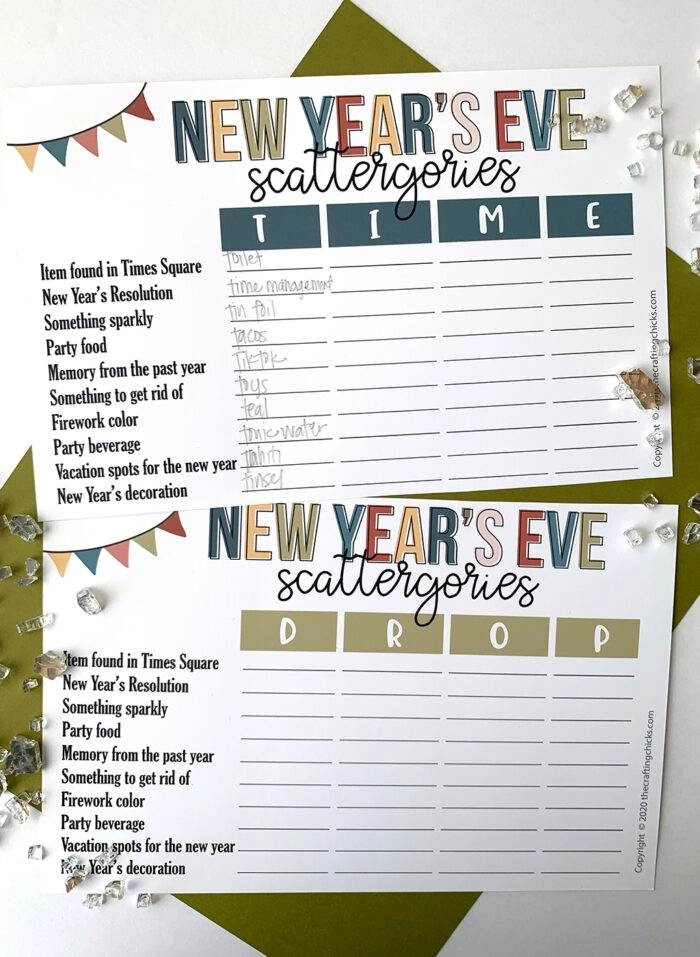 NEW YEAR'S EVE
scattergories
T I M E
Item found in Times Square toilet
New Year's Resolution time management
Something sparkly tin foil
Party food tacos
Memory from the past year TikTok
Something to get rid of toys
Firework color teal
Party beverage tonic water
Vacation spots for the new year Tahiti
New Year's decoration tinsel
Copyright © thecraftingchicks.com
NEW YEAR'S EVE
scattergories
D R O P
Item found in Times Square
New Year's Resolution
Something sparkly
Party food
Memory from the past year
Something to get rid of
Firework color
Party beverage
Vacation spots for the new year
New Year's decoration
Copyright © 2020 thecraftingchicks.com